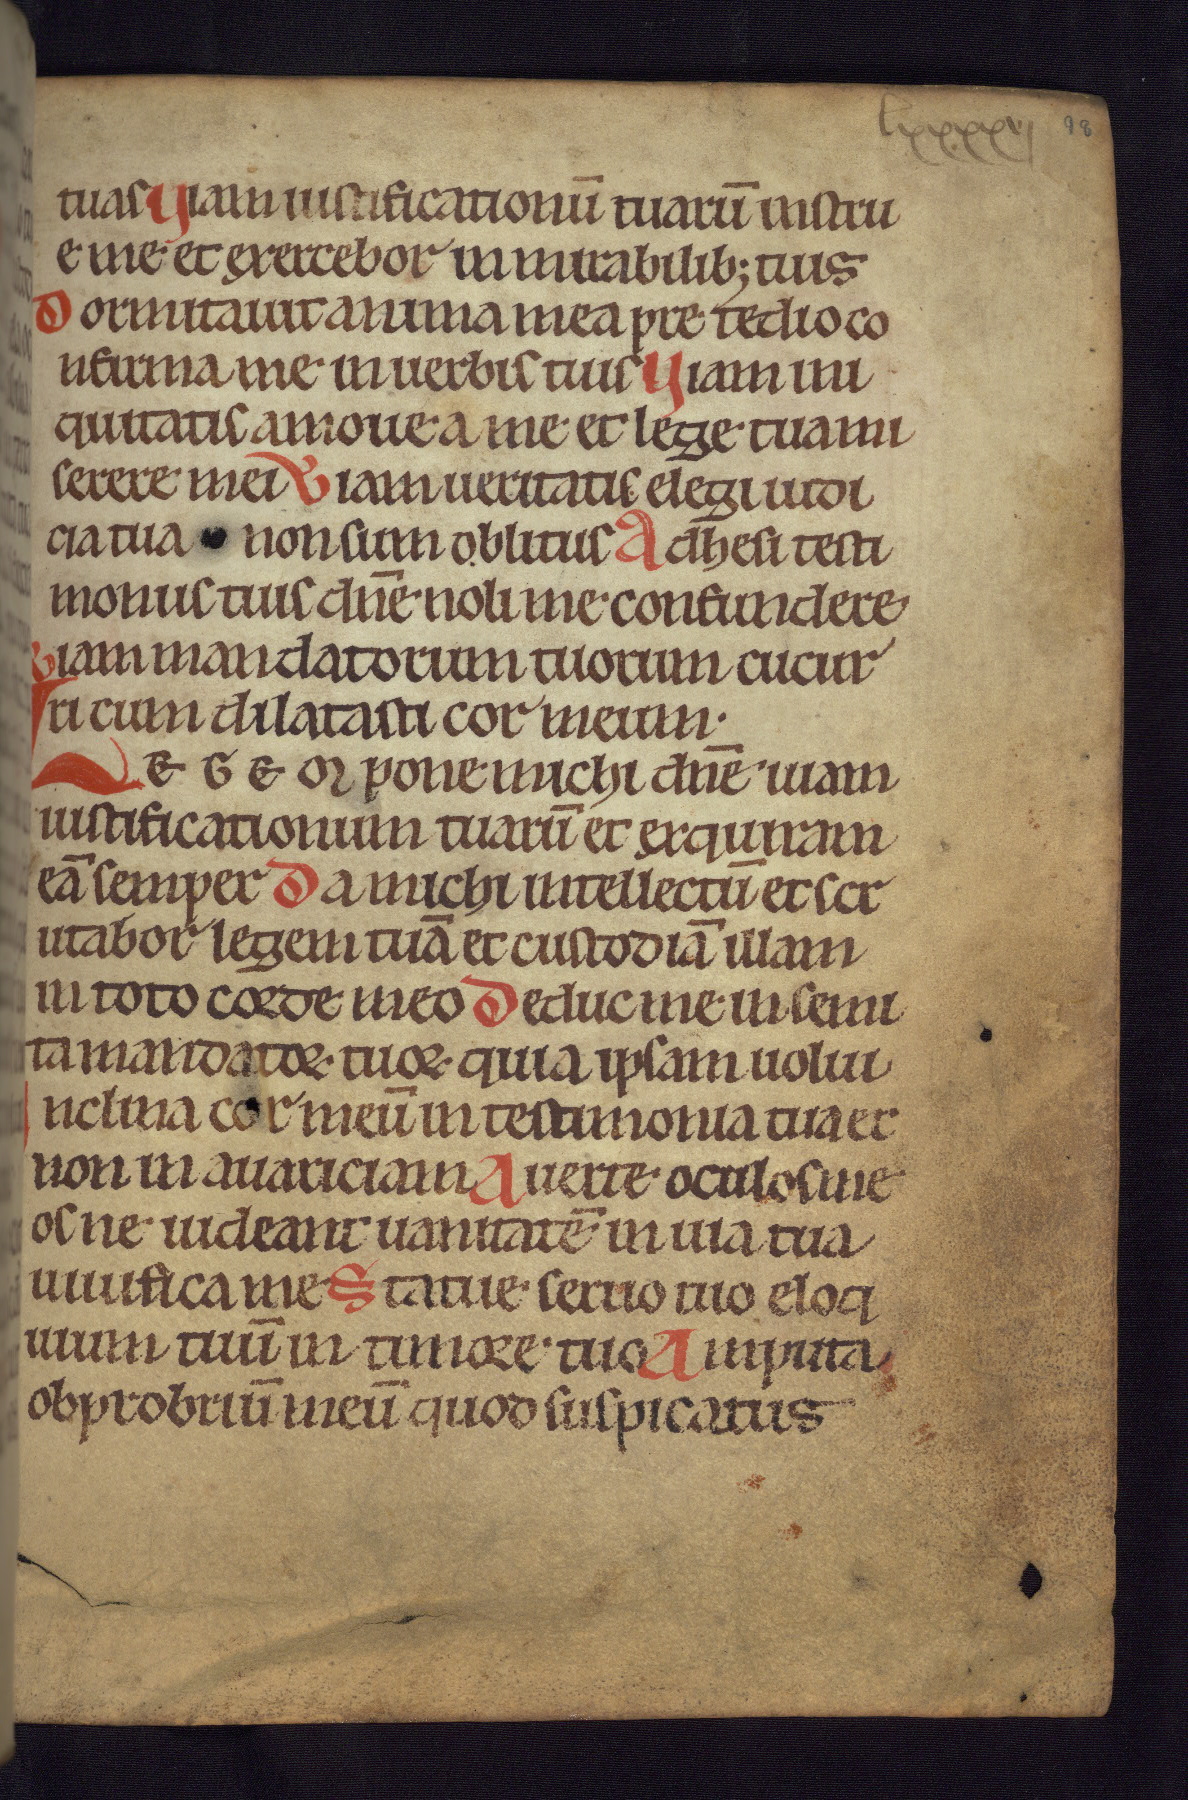 lxxxxvij 98
tuas Viam iustificationū tuarū instru
e me et exercebor in mirabilib; tuis
Dormitauit anima mea pre tedio co
nfirma me in uerbis tuis Viam ini
quitatis amoue a me et lege tua mi
serere mei Viam ueritatis elegi iudi
cia tua non sum oblitus Adhesi testi
moniis tuis dn̄e noli me confundere
Viam mandatorum tuorum cucur
ri cum dilatasti cor meum.
LEGEM pone michi dn̄e uiam
iustificationum tuarū et exquiram
eā semper Da michi intellectū et scr
utabor legem tuā et custodiā illam
in toto corde meo Deduc me in semi
ta mandatoꝝ tuoꝝ quia ipsam uolui
Inclina cor meū in testimonia tua et
non in auariciam Auerte oculos me
os ne uideant uanitatē in uia tua
uiuifica me Statue seruo tuo eloq
uium tuū in timore tuo Amputa
obprobriū meū quod suspicatus